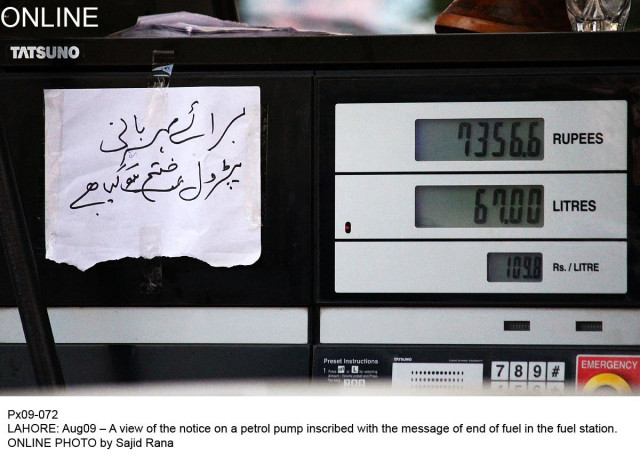 ONLINE
TATSUNO
برائے مہربانی
پٹرول ختم ہوگیا ہے
7356.6 RUPEES
67.00 LITRES
109.8 Rs. / LITRE
Preset Instructions
TATSUNO
7 8 9 #
EMERGENCY
Px09-072
LAHORE: Aug09 – A view of the notice on a petrol pump inscribed with the message of end of fuel in the fuel station.
ONLINE PHOTO by Sajid Rana